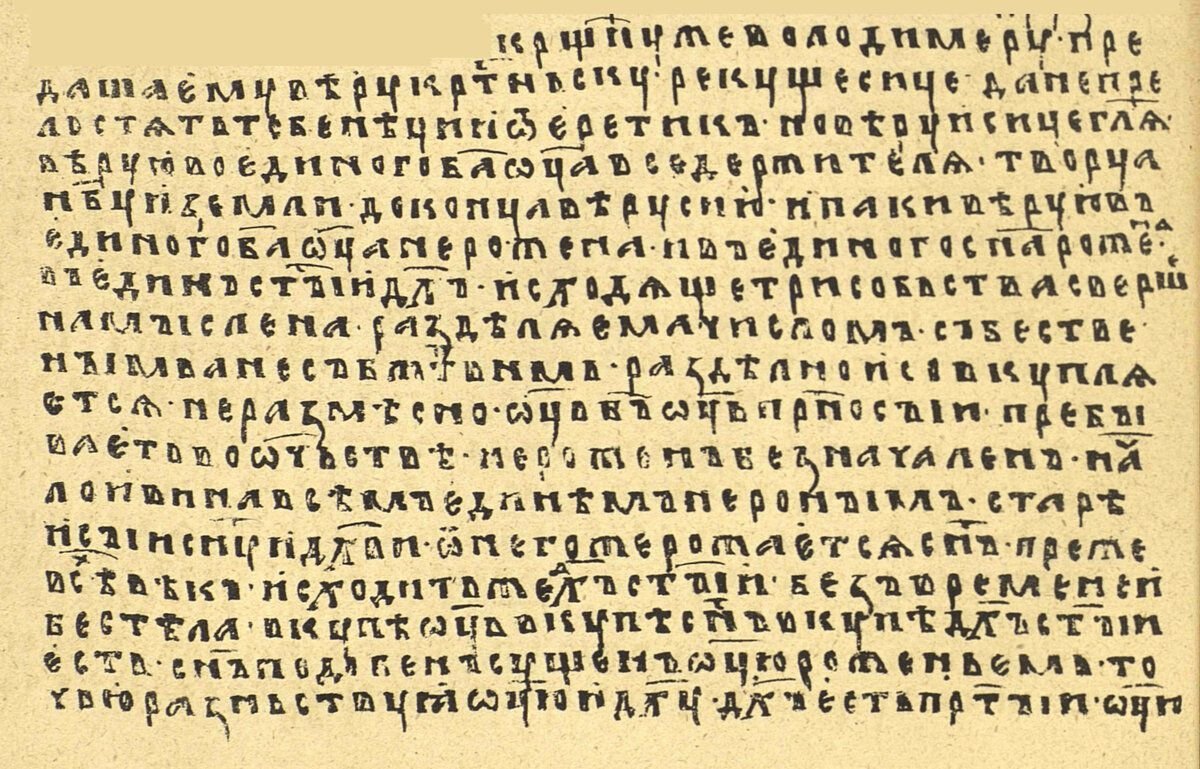 крщ҃нꙋ же володимерꙋ · пре
даша емꙋ вѣрꙋ крт҃ньскꙋ · рекꙋще сице · да не пре
лостѧть тебе нѣции ѿ еретикъ · но вѣрꙋи сице гл҃ѧ ·
вѣрꙋю во единого ба҃ ѡц҃а вседержителѧ · творца
нб҃ꙋ и земли · до конца вѣрꙋ сию · и паки вѣрꙋю въ
единого ба҃ ѡц҃а нерожена · и въ единого сн҃а рожена
въ единъ ст҃ыи дх҃ъ · исходѧще три собьства сверш
на мыслена · раздѣлѧема числомь · събестве
нымь а не съ бл҃жвнмь · раздѣлно и совкꙋплѧ
етсѧ · неразмѣсно · ѡц҃ь бъ҃ ѡц҃ь прн҃о сыи · пребы
ваеть во ѡч҃ьствѣ · нероженъ безначаленъ · нача
ло и вина всѣмъ единѣмь нерон҃ымь · старѣ
и сыи сн҃ꙋ и дх҃ви · ѿ него же рожаетсѧ сн҃ъ · преже
всѣ вѣкъ · исходить же дх҃ъ ст҃ыи · безъ времене и
бес тѣла · вкꙋпѣ ѡц҃ь вкꙋпѣ сн҃ъ вкꙋпѣ дх҃ъ ст҃ыи
есть · сн҃ъ подобенъ сꙋщенъ ѡц҃ю роженьемь · то
чью разньствꙋꙗ ѡц҃ю и дх҃ꙋ · дх҃ъ есть прт҃ыи · ѡц҃ю